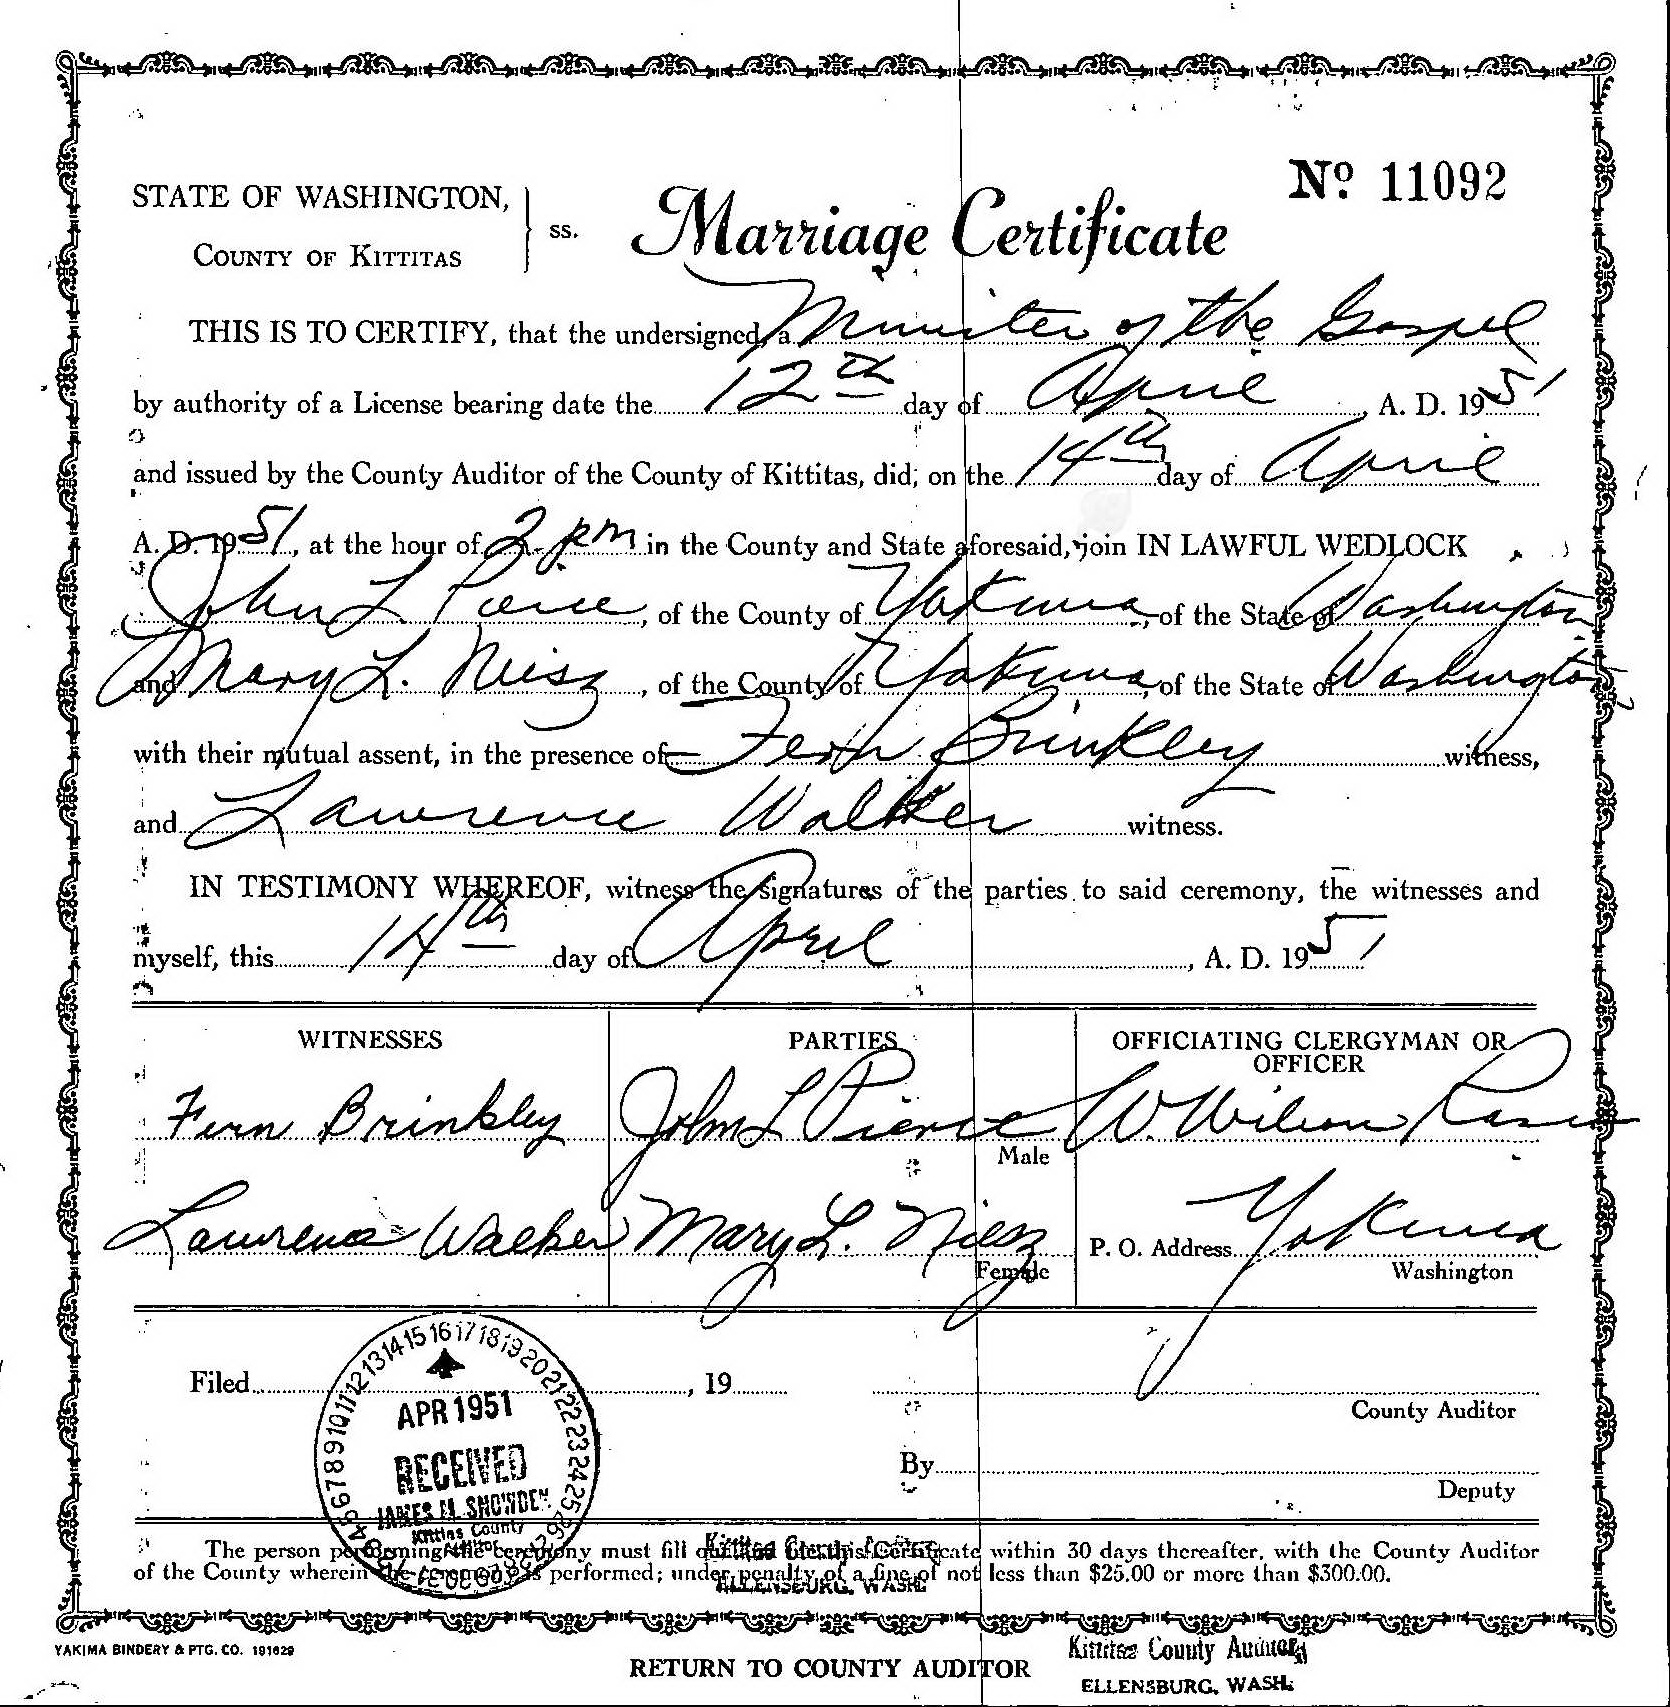 Nº 11092
STATE OF WASHINGTON,
COUNTY OF KITTITAS
ss.
Marriage Certificate
THIS IS TO CERTIFY, that the undersigned, a Minister of the Gospel
by authority of a License bearing date the 12th day of April, A. D. 1951
and issued by the County Auditor of the County of Kittitas, did, on the 14th day of April
A. D. 1951, at the hour of 2 pm in the County and State aforesaid, join IN LAWFUL WEDLOCK
John L Pierce, of the County of Yakima, of the State of Washington
and Mary L. Niesz, of the County of Yakima, of the State of Washington
with their mutual assent, in the presence of Fern Brinkley witness,
and Lawrence Walker witness.
IN TESTIMONY WHEREOF, witness the signatures of the parties to said ceremony, the witnesses and
myself, this 14th day of April, A. D. 1951
WITNESSES
PARTIES
OFFICIATING CLERGYMAN OR
OFFICER
Fern Brinkley
John L Pierce
W. Wilson
Male
Lawrence Walker
Mary L. Niesz
P. O. Address Yakima
Female
Washington
Filed , 19
County Auditor
By
Deputy
1 2 3 4 5 6 7 8 9 10 11 12 13 14 15 16 17 18 19 20 21 22 23 24 25 26 27 28 29 30 31
APR 1951
RECEIVED
JAMES M. SNOWDEN
Kittitas County
Auditor
Kittitas County
ELLENSBURG, WASH.
The person performing the ceremony must fill out and file this Certificate within 30 days thereafter, with the County Auditor
of the County wherein the ceremony is performed; under penalty of a fine of not less than $25.00 or more than $300.00.
YAKIMA BINDERY & PTG. CO. 191629
RETURN TO COUNTY AUDITOR
Kittitas County Auditor
ELLENSBURG, WASH.